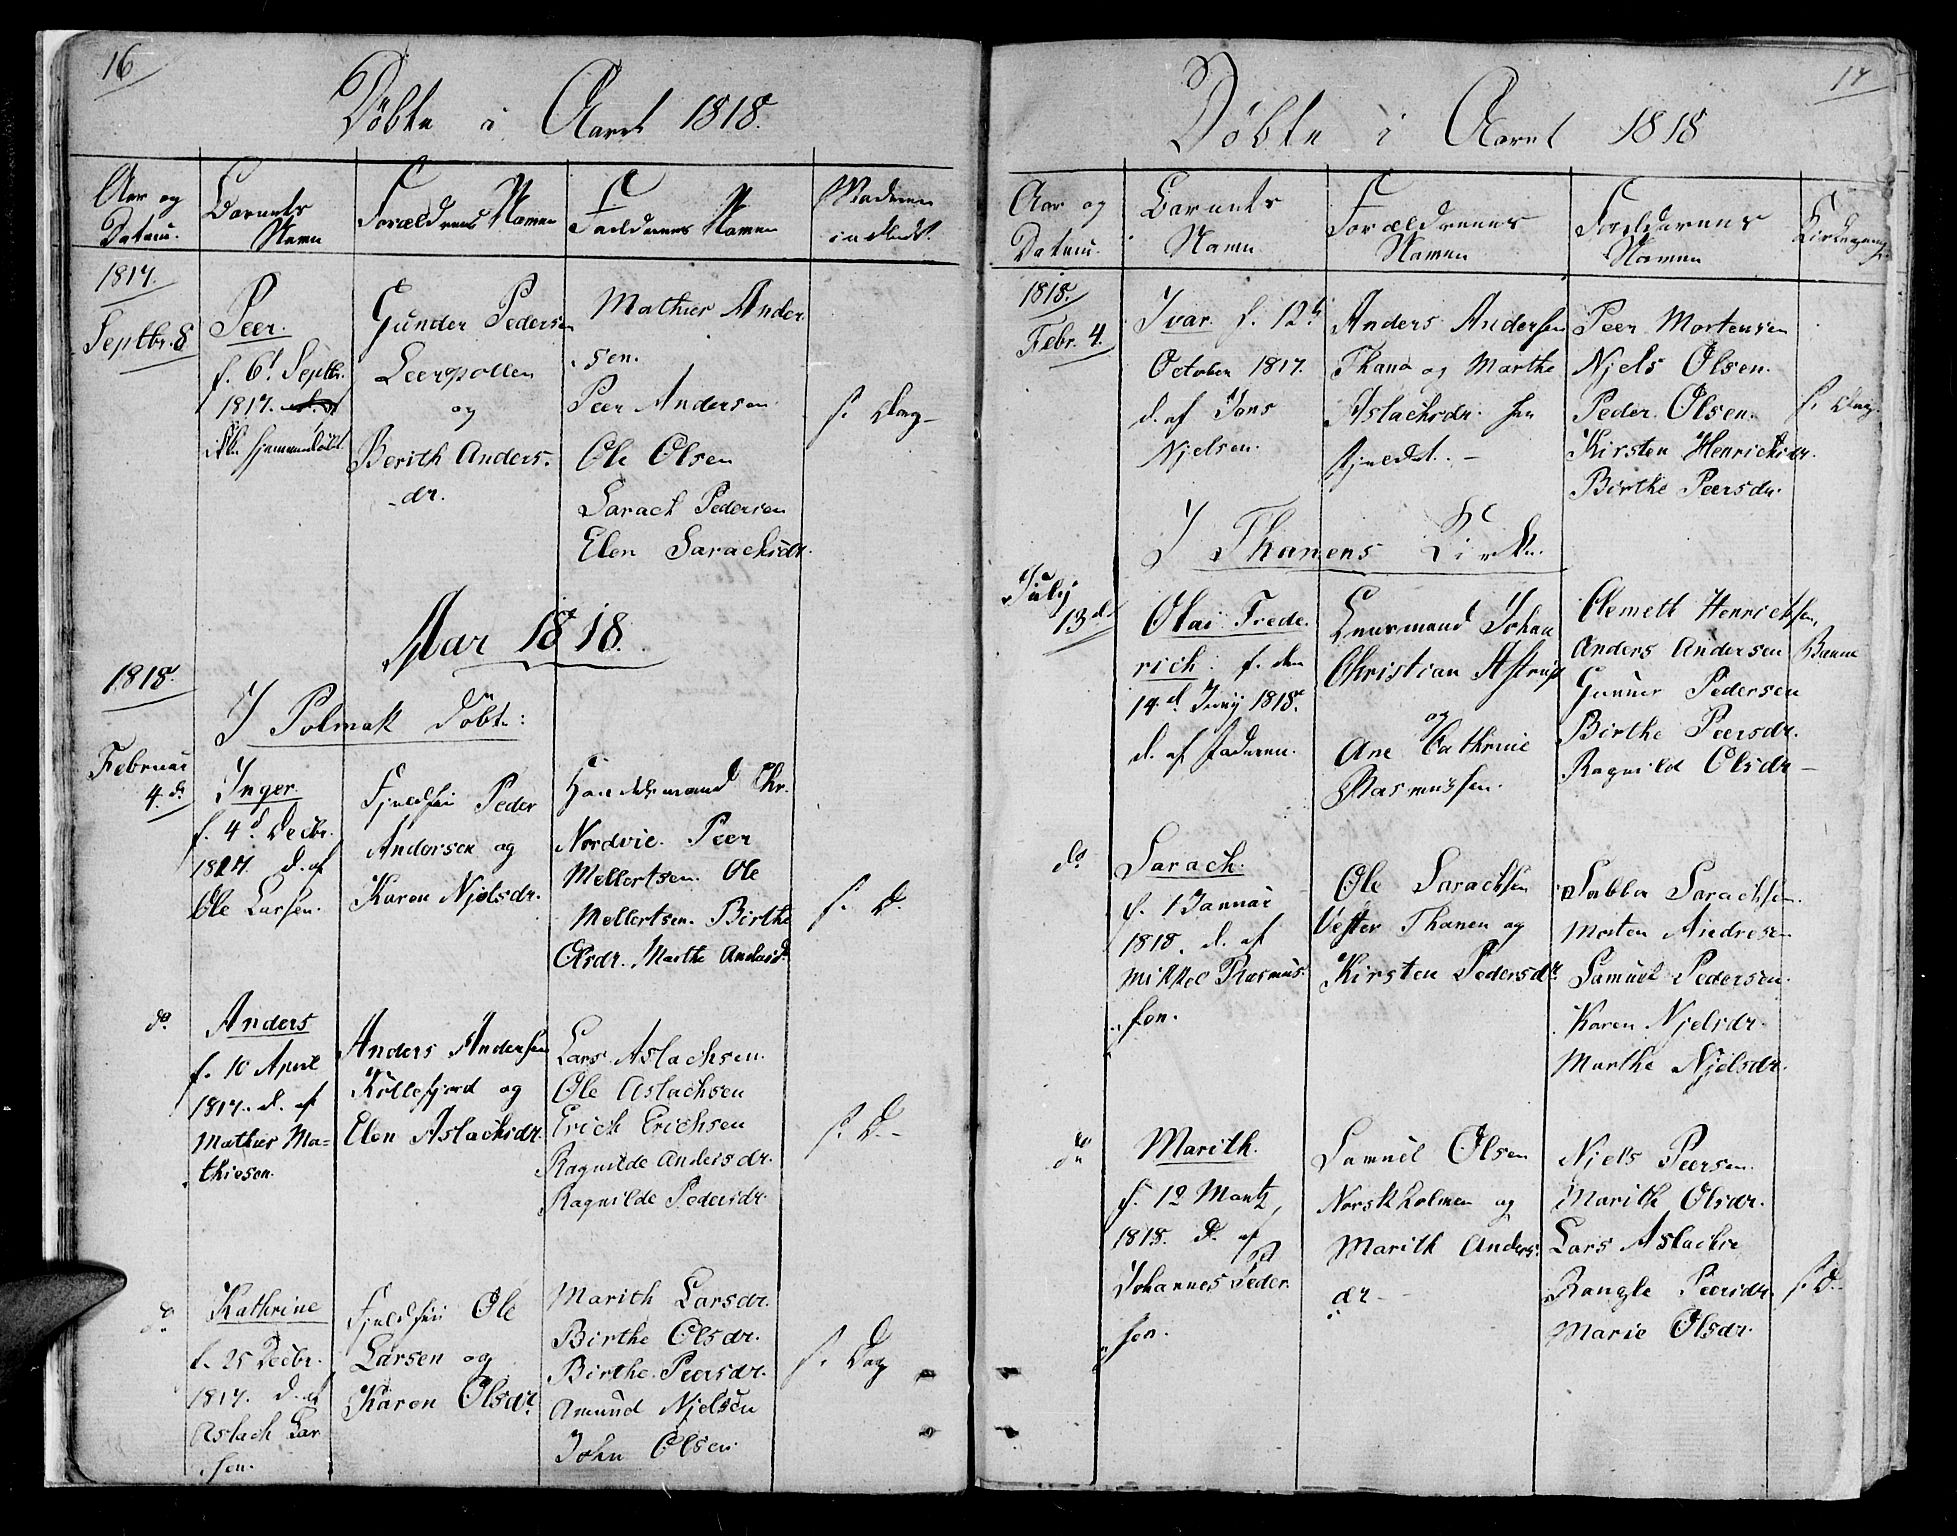 16
Døbte i Aaret 1818.
Aar og
Datum.
Barnets
Navn
Forældrenes Navne
Faddernes Navne
1817.
Septbr. 8
Peer.
f. 6t Septbr.
1817.
ikke hjemmedøbt
Gunder Pedersen
Leerpollen
og
Berith Anders-
dr.
Mathies Ander
sen.
Peer Andersen
Ole Olsen
Sarach Pedersen
Elen Sarachsdr.
s. Dag
Aar 1818.
1818.
I Polmak døbt:
Februar
4. d.
Inger.
f. 4d Decbr.
1817 d. af
Ole Larsen.
Fjeldfin Peder
Andersen og
Karen Njelsdr.
Handelsmand Chr.
Nordvie. Peer
Mellertsen. Ole
Mellertsen. Birthe
Olsdr. Marthe Andersd.
s. D.
do
Anders
f. 10 April
1817. d. af
Mathies Ma-
thiesen.
Anders Andersen
Kollefjord og
Elen Aslachsdr.
Lars Aslachsen.
Ole Aslachsen
Erich Erichsen
Ragnilde Andersdr.
Ragnilde Pedersdr.
s. D.
do
Kathrine
f. 25 Decbr.
1817. d. af
Aslach Lar
sen.
Fjeldfin Ole
Larsen og
Karen Olsdr.
Marith Larsdr.
Birthe Olsdr.
Birthe Peersdr.
Amund Njelsen
John Olsen.
s. Dag
17
Døbte i Aaret 1818
Aar og
Datum.
Barnets
Navn
Forældrenes
Navne
Faddernes
Navne
Kirkegang
1818.
Febr. 4.
Ivar. f. 12t
October 1817.
d. af Jons
Njelsen.
Anders Andersen
Thana og Marthe
Aslachsdr.
Peer Mortensen
Njels Olsen.
Peder Olsen.
Kirsten Henrichsdr.
Birthe Peersdr.
s. Dag.
I Thanens Kirke.
July
13d
Olai Frede
rich. f. den
14d Juny 1818.
d. af Faderen.
Leensmand Johan
Christian Astrup
og
Ane Cathrine
Rasmussen.
Clemett Henrichsen,
Anders Andersen
Gunner Pedersen
Birthe Peersdr.
Ragnild Olsdr
do
Sarach.
f. 1 Januar
1818. d. af
Mikkel Rasmus
sen.
Ole Sarachsen
Vester Thanen og
Kirsten Pedersdr.
Sabba Sarachsen.
Morten Andresen
Samuel Pedersen.
Karen Njelsdr.
Marthe Njelsdr.
do
Marith.
f. 12 Martz
1818. d. af
Johannes Peder
sen.
Samuel Olsen
Norskholmen og
Marith Anders.
dr
Niels Peersen.
Marith Olsdr.
Lars Aslachs
Rangle Peersdr.
Marie Olsdr.
s. D.